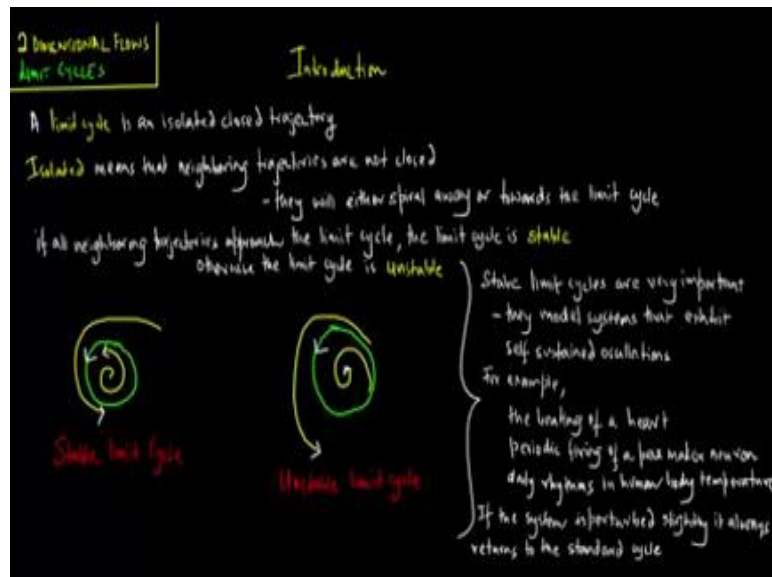 2 DIMENSIONAL FLOWS
LIMIT CYCLES
Introduction
A limit cycle is an isolated closed trajectory
Isolated means that neighboring trajectories are not closed
- they will either spiral away or towards the limit cycle
if all neighboring trajectories approach the limit cycle, the limit cycle is stable
otherwise the limit cycle is unstable
Stable limit cycles are very important
- they model systems that exhibit
self sustained oscillations
For example,
the beating of a heart
periodic firing of a pace maker neuron
daily rhythms in human body temperature
If the system is perturbed slightly it always
returns to the standard cycle
Stable limit cycle
Unstable limit cycle